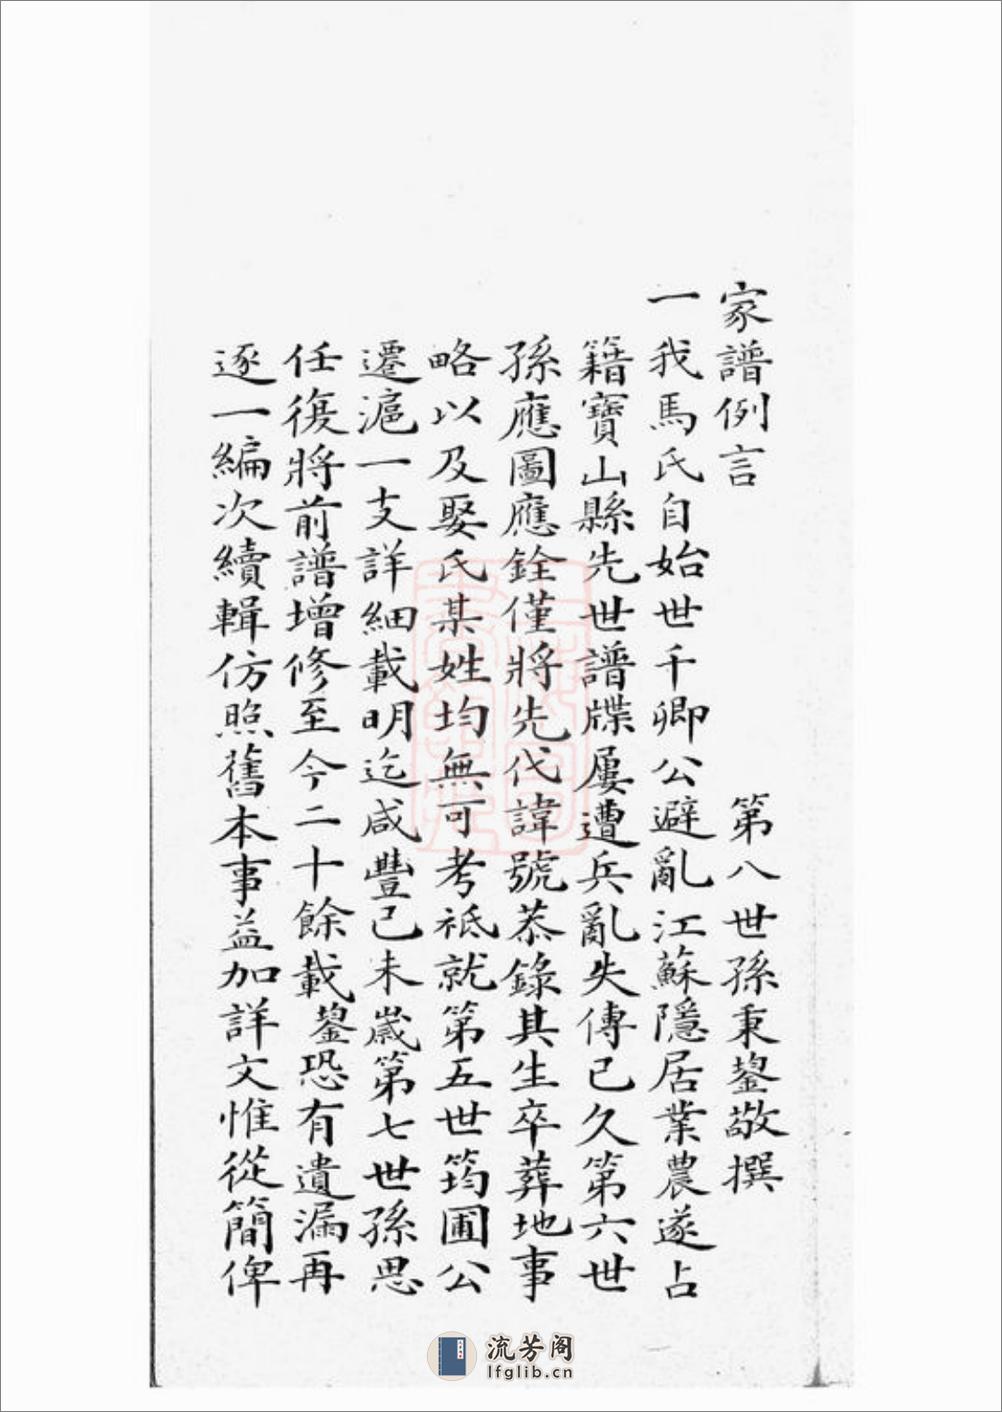 家譜例言 第八世孫秉鋆敬撰
一我馬氏自始世千卿公避亂江蘇隱居業農遂占
籍寶山縣先世譜牒屢遭兵亂失傳已久第六世
孫應圖應銓僅將先代諱號恭錄其生卒葬地事
略以及娶氏某姓均無可考祗就第五世筠圃公
遷滬一支詳細載明迄咸豐己未歲第七世孫思
任復將前譜增修至今二十餘載鋆恐有遺漏再
逐一編次續輯仿照舊本事益加詳文惟從簡俾
流芳阁
lfglib.cn